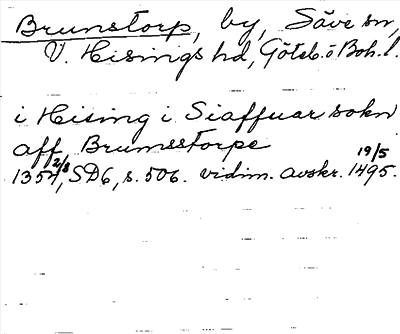 Brunstorp, by, Säve sn,
V. Hisings hd, Göteb. o Boh. l.
i Hising i Siaffuar sokn
aff Brumsstorpe
1354 2/8, SD6, s. 506. vidim. avskr. 19/5 1495.